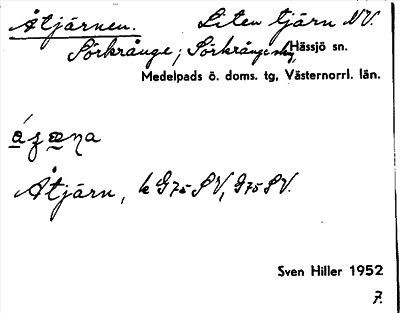 Åtjärnen. Liten tjärn NV.
Sörkrånge; Sörkrånge skg, Hässjö sn.
Medelpads ö. doms. tg, Västernorrl. län.
Åtjärn, k G75 SV, G75 SV.
Sven Hiller 1952
7.